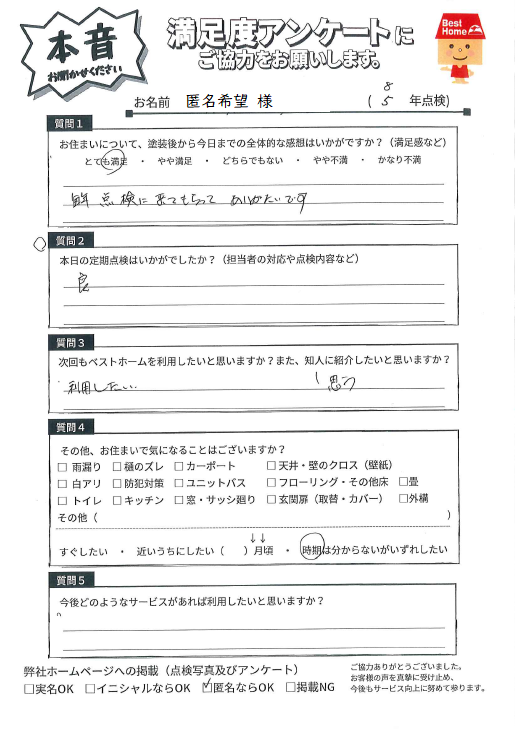 本音
お聞かせください
満足度アンケートに
ご協力をお願いします。
Best
Home
お名前 匿名希望 様
8
( 5 年点検)
質問1
お住まいについて、塗装後から今日までの全体的な感想はいかがですか?(満足感など)
とても満足 ・ やや満足 ・ どちらでもない ・ やや不満 ・ かなり不満
毎年 点検に来てもらって ありがたいです
質問2
本日の定期点検はいかがでしたか?(担当者の対応や点検内容など)
良
質問3
次回もベストホームを利用したいと思いますか?また、知人に紹介したいと思いますか?
利用したい 思う
質問4
その他、お住まいで気になることはございますか?
□ 雨漏り □ 樋のズレ □ カーポート □ 天井・壁のクロス(壁紙)
□ 白アリ □ 防犯対策 □ ユニットバス □ フローリング・その他床 □畳
□ トイレ □ キッチン □ 窓・サッシ廻り □ 玄関扉(取替・カバー) □外構
その他( )
↓↓
すぐしたい ・ 近いうちにしたい( )月頃 ・ 時期は分からないがいずれしたい
質問5
今後どのようなサービスがあれば利用したいと思いますか?
弊社ホームページへの掲載(点検写真及びアンケート)
□実名OK □イニシャルならOK ☑匿名ならOK □掲載NG
ご協力ありがとうございました。
お客様の声を真摯に受け止め、
今後もサービス向上に努めて参ります。